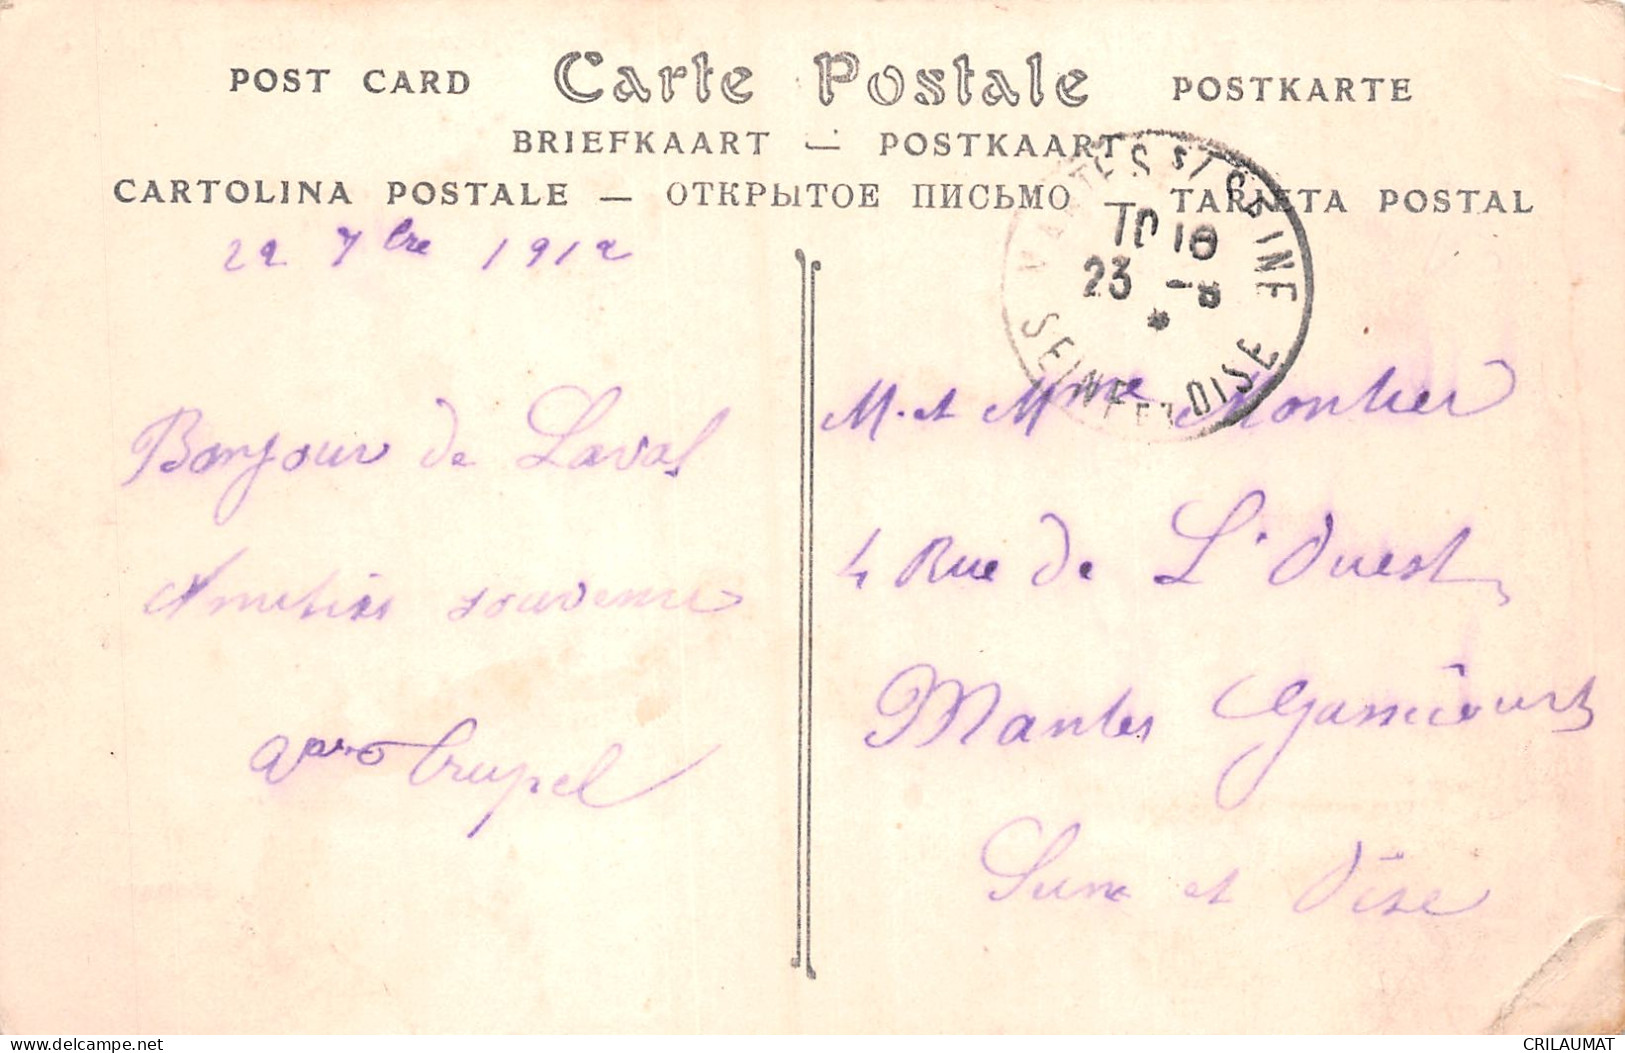 POST CARD Carte Postale POSTKARTE
BRIEFKAART — POSTKAART
CARTOLINA POSTALE — ОТКРЫТОЕ ПИСЬМО — TARJETA POSTAL
22 7bre 1912
MANTES S/ SEINE
10
23 -9
*
SEINE ET OISE
Bonjour de Laval
souvenir
M. et Mme Montier
4 Rue de L'Ouest
Mantes Gassicourt
Seine et Oise
CRILAUMAT